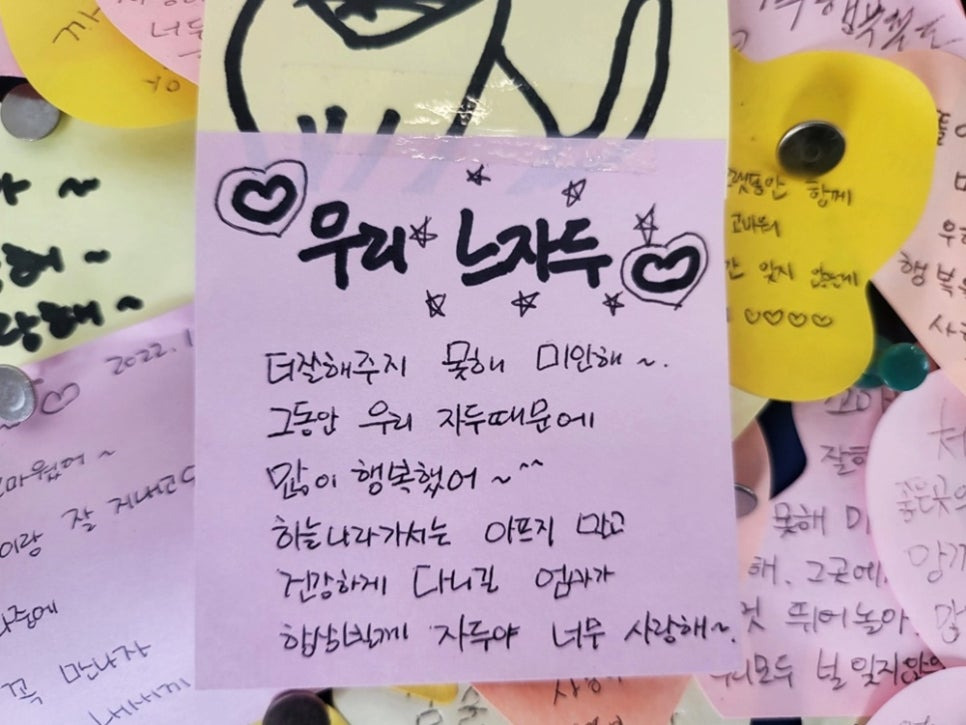 우리 스자두
더잘해주지 못해 미안해~.
그동안 우리 자두때문에
많이 행복했어~^^
하늘나라가서는 아프지 말고
건강하게 다니길 엄마가
항상빌께 자두야 너무 사랑해~.
2022.1
마웠어~
이랑 잘 지내고
나중에
꼭 만나자
랫동안 함께
고마워
잊지 않을게
♡♡♡♡
행복
잘해
못해 미
해. 그곳에
뛰어놀아
널 잊지않
좋은곳